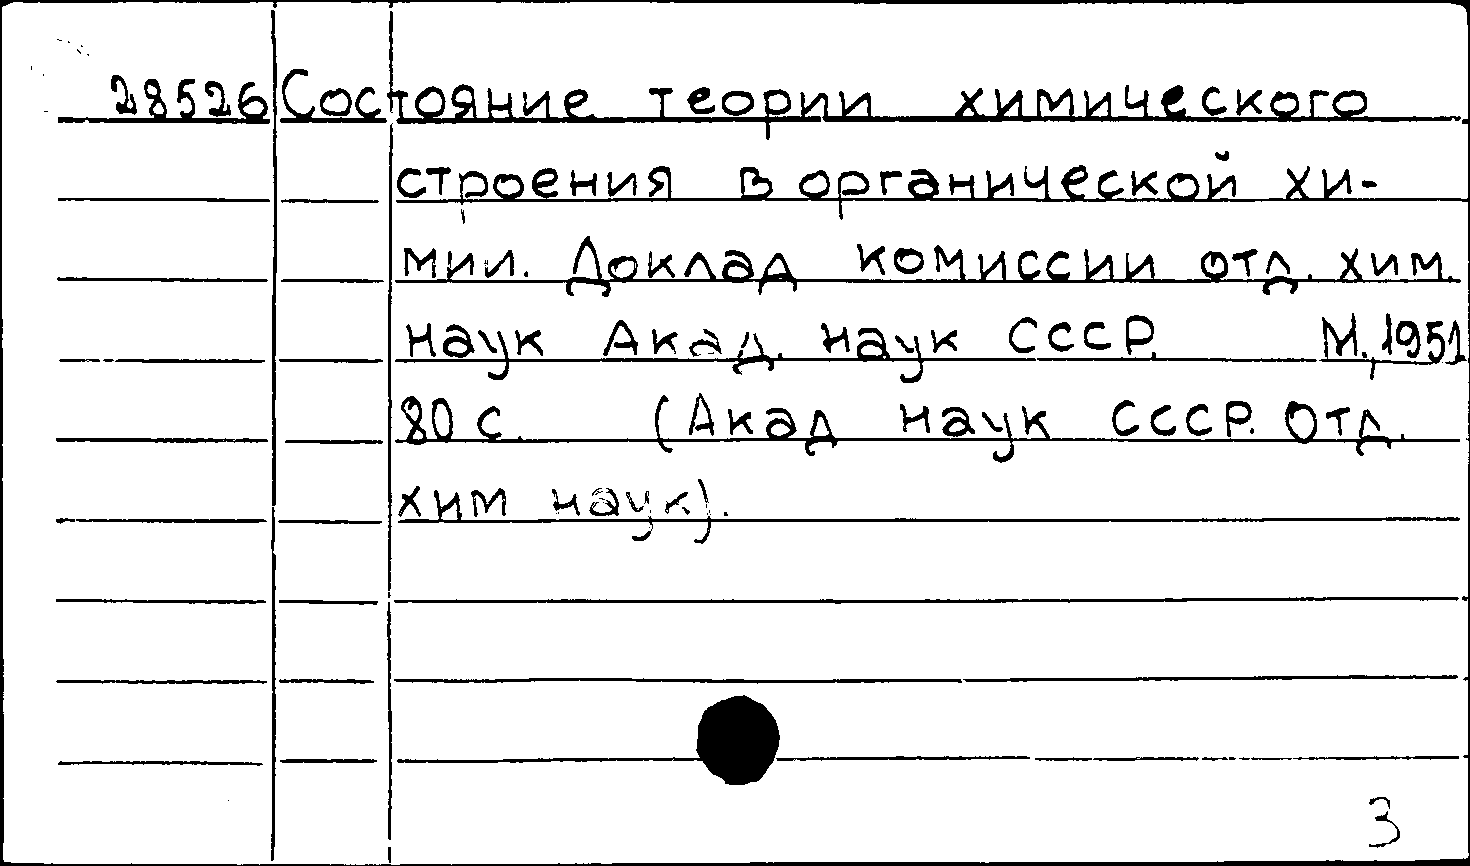 28526 Состояние теории химического
строения в органической хи-
мии. Доклад комиссии отд. хим.
наук Акад. наук СССР. М., 1951
80 с. (Акад наук СССР. Отд.
хим наук).
3